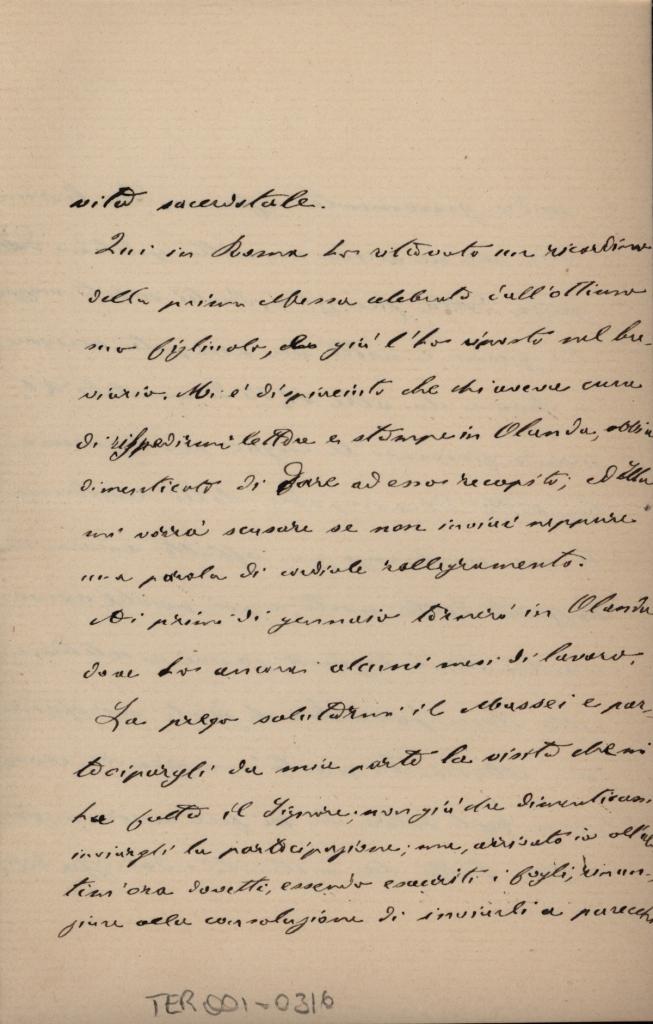 vita sacerdotale.
Qui in Roma ho ritrovato un ricordino
della prima Messa celebrata dall'ottimo
suo figliuolo, che già l'ho riposto nel bre-
viario. Mi è dispiaciuto che chi aveva cura
di rispedirmi lettere e stampe in Olanda, abbia
dimenticato di dare ad esso recapito; ed Ella
mi vorrà scusare se non inviai neppure
una parola di cordiale rallegramento.
Ai primi di gennaio tornerò in Olanda
dove ho ancora alcuni mesi di lavoro.
La prego salutarmi il Massei e par-
tecipargli da mia parte la visita che mi
ha fatto il Signore; non già che dimenticassi
inviargli la partecipazione; ma, arrivato io all'ul
tim'ora dovetti, essendo esauriti i fogli, rinun-
ziare alla consolazione di inviarli a parecchi
TER 001-0316